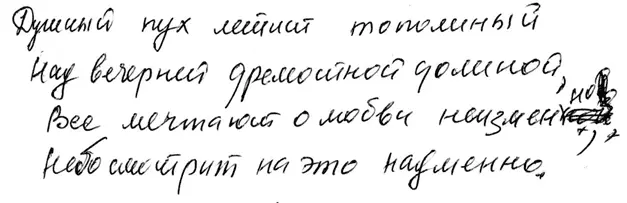 Душный пух летит тополиный
Над вечерней дремотной долиной,
Все мечтают о любви неизменно,
Небо смотрит на это надменно.